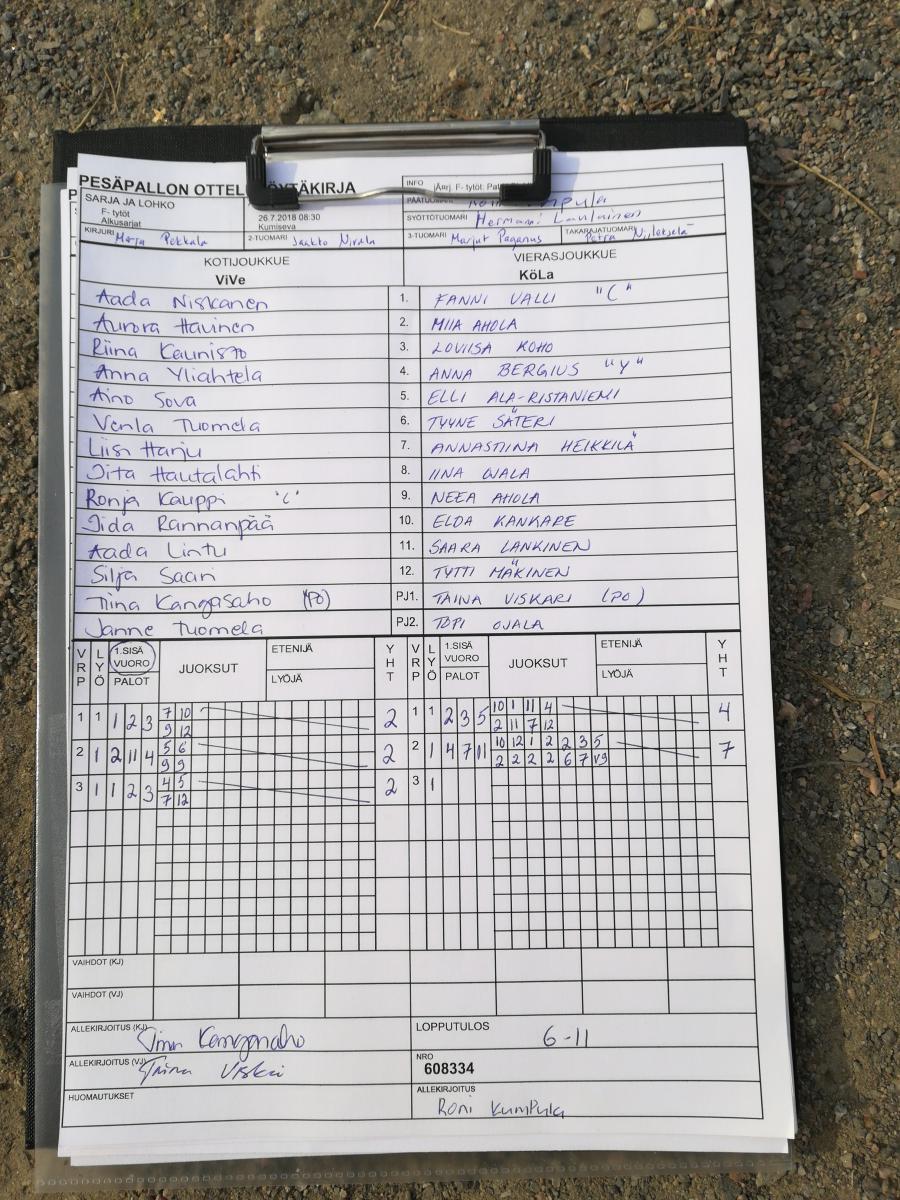 PESÄPALLON OTTEL YTÄKIRJA
INFO
SARJA JA LOHKO
F- tytöt
Alkusarjat
26.7.2018 08:30
Kumiseva
SYÖTTÖTUOMARI Hermanni Laulainen
KIRJURI Merja Pekkala
2-TUOMARI Jaakko Nivala
3-TUOMARI Marjut Paganus
TAKARAJATUOMARI Petra
KOTIJOUKKUE VIERASJOUKKUE
ViVe KöLa
Aada Niskanen 1. FANNI VALLI "C"
Aurora Havinen 2. MIIA AHOLA
Riina Kaunisto 3. LOVIISA KOHO
Anna Yliahtela 4. ANNA BERGIUS "V"
Aino Sova 5. ELLI ALA-RISTANIEMI
Venla Tuomela 6. TYYNE SÄTERI
Liisi Harju 7. ANNASTIINA HEIKKILÄ
Iita Hautalahti 8. IINA OJALA
Ronja Kauppi "C" 9. NEEA AHOLA
Iida Rannanpää 10. ELDA KANKARE
Aada Lintu 11. SAARA LANKINEN
Silja Saari 12. TYTTI MÄKINEN
Tiina Kangasaho (PO) PJ1. TAINA VISKARI (PO)
Janne Tuomela PJ2. TOPI OJALA
VRP LYÖ 1.SISÄ VUORO PALOT JUOKSUT ETENIJÄ LYÖJÄ YHT VRP LYÖ 1.SISÄ VUORO PALOT JUOKSUT ETENIJÄ LYÖJÄ YHT
1 1 1 2 3 7 10 2 1 1 2 3 5 10 1 11 4 4
9 12 2 11 7 12
2 1 2 11 4 5 6 2 2 1 4 7 11 10 12 1 2 2 3 5 7
9 9 2 2 2 2 6 7 V9
3 1 1 2 3 4 5 2 3 1
7 12
VAIHDOT (KJ)
VAIHDOT (VJ)
ALLEKIRJOITUS (KJ) Tiina Kangasaho
LOPPUTULOS 6-11
ALLEKIRJOITUS (VJ) Taina Viskari
NRO
608334
HUOMAUTUKSET
ALLEKIRJOITUS
Roni Kumpula